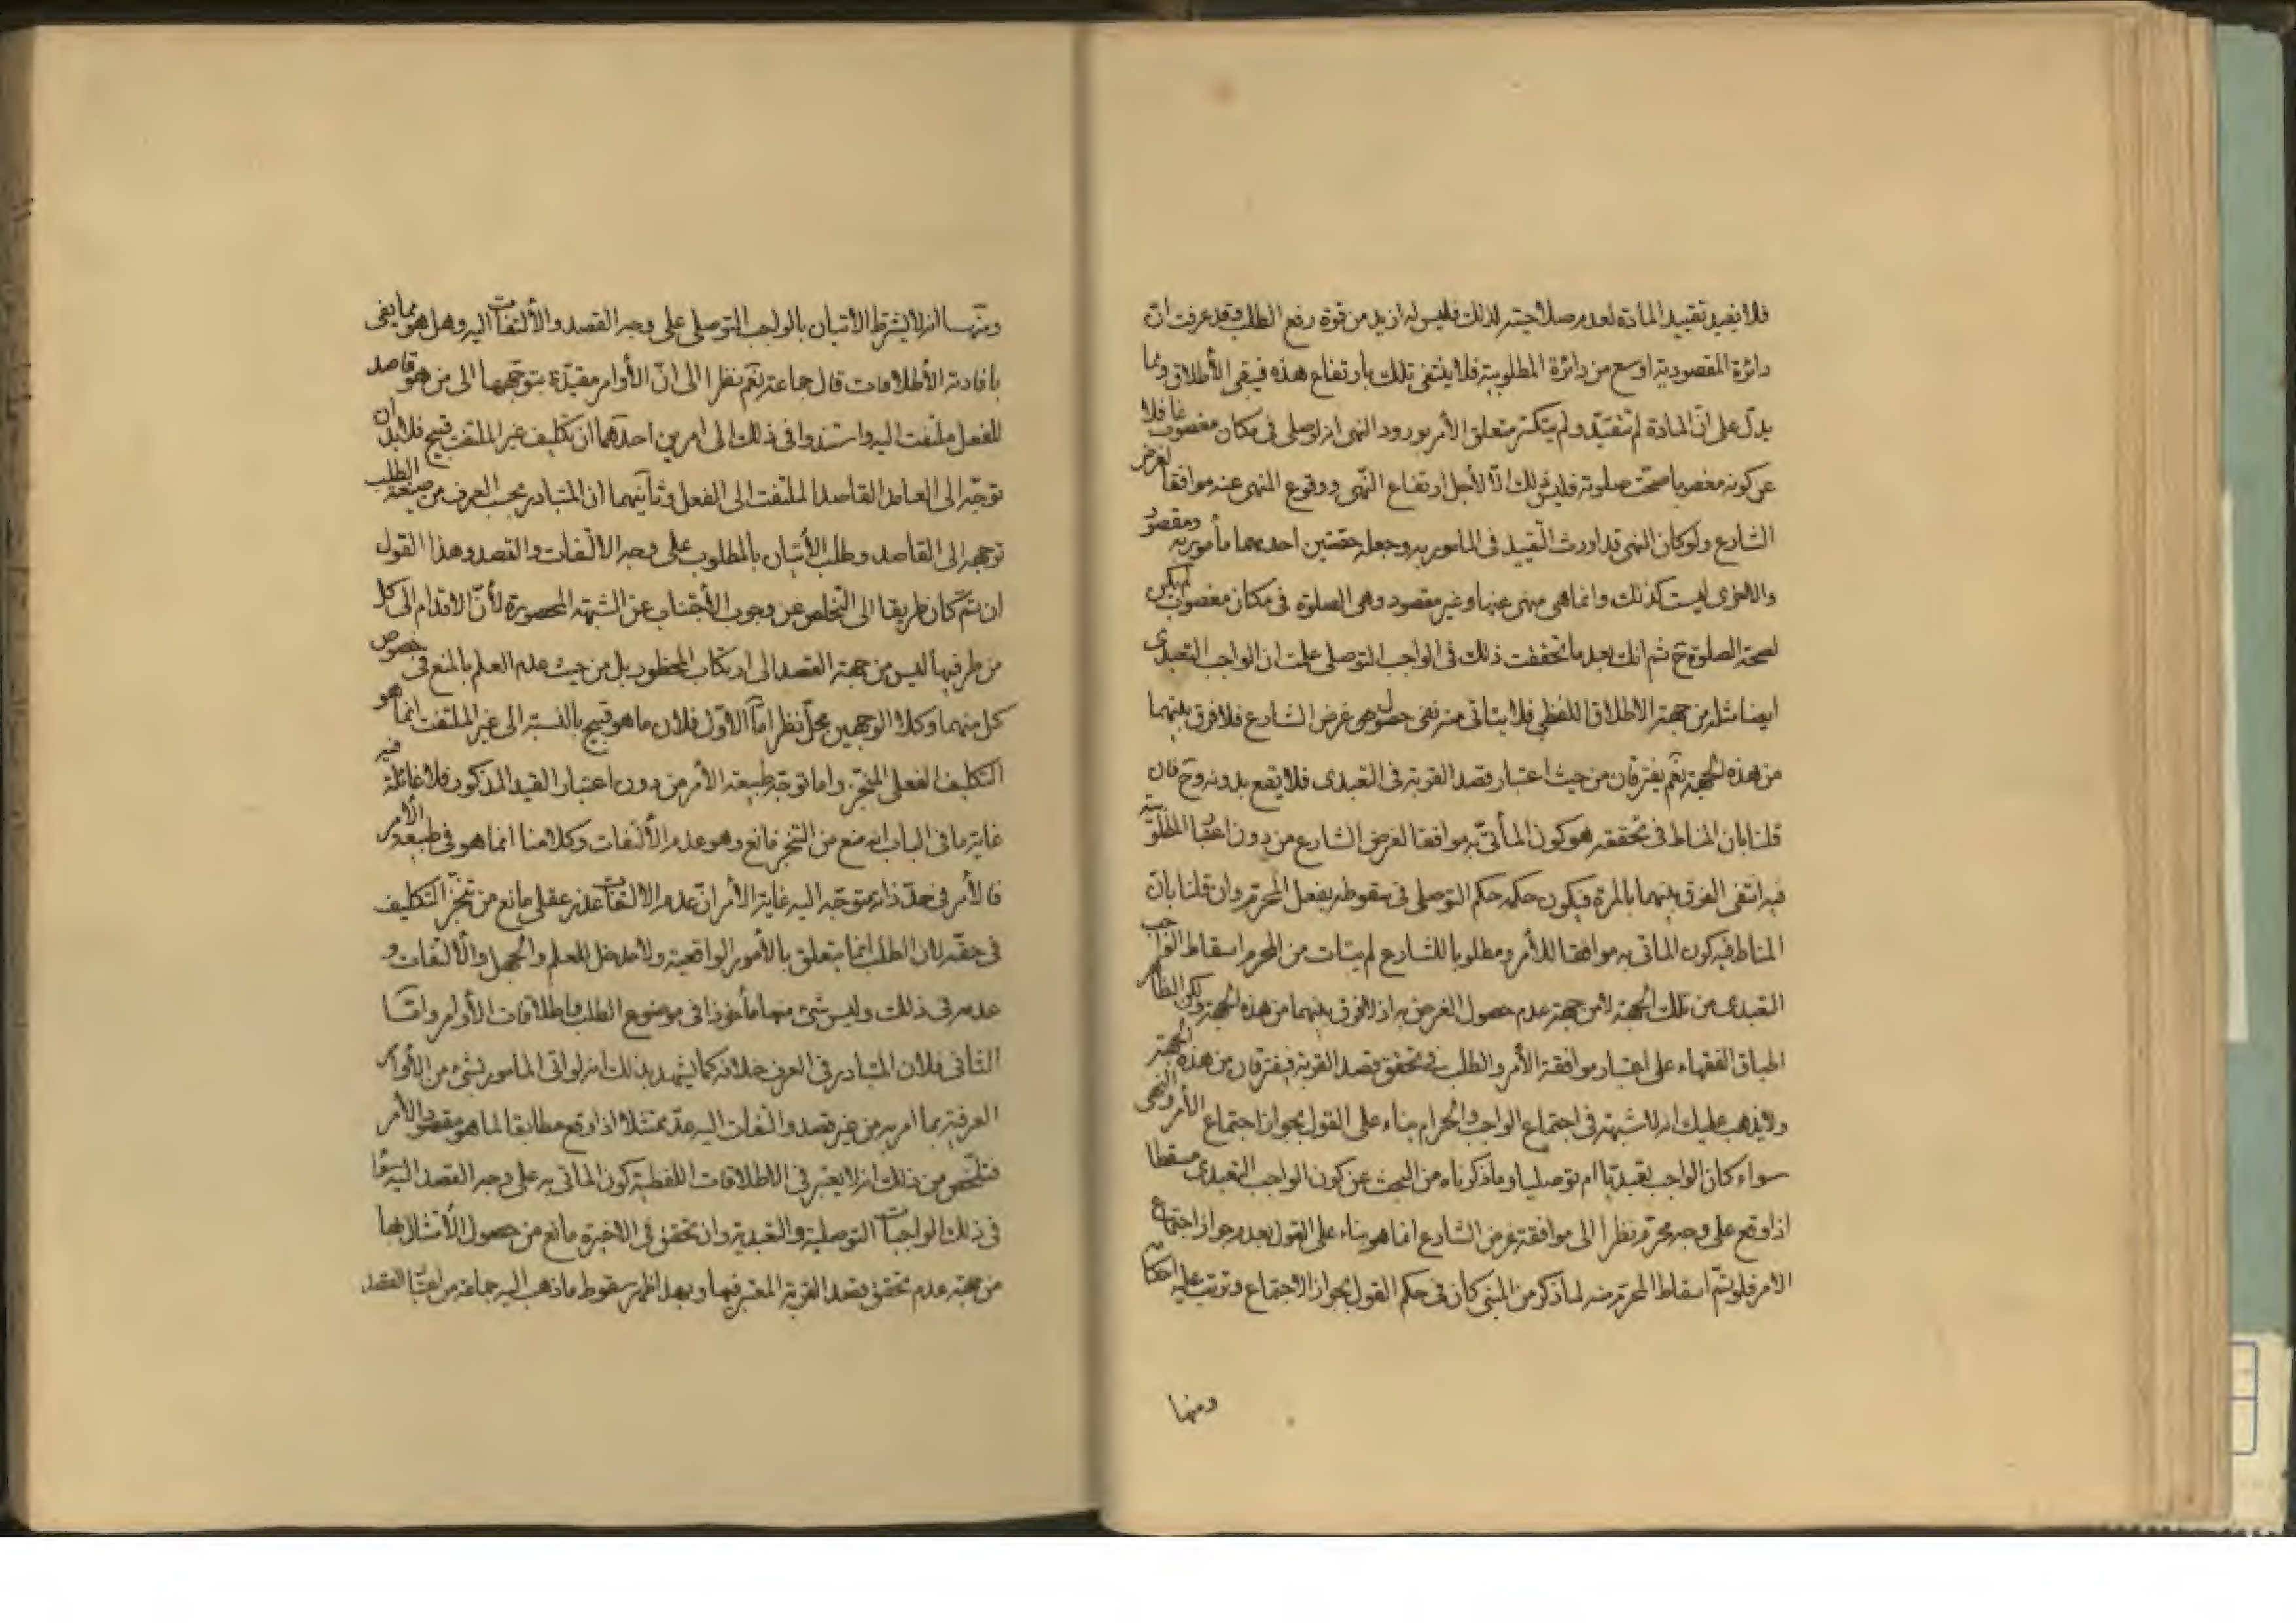 فلا يفيد تقييد المادة لعدم صلاحيته لذلك فليس له ازيد من قوة رفع الطلب وقد عرفت ان
دائرة المقصودية اوسع من دائرة المطلوبية فلا ينتفى تلك بارتفاع هذه فيبقى الأطلاق ومما
يدل على ان المادة لم تتقيد ولم يتكثر متعلق الأمر بورود النهى انه لو صلى فى مكان مغصوب غافلا
عن كونه مغصوبا صحت صلوته فليس ذلك الا لأجل ارتفاع النهى ووقوع المنهى عنه موافقا لغرض
الشارع ولو كان النهى قد اورث التقييد فى المامور به وجعله حصتين احديهما مأمور به ومقصود
والاخرى ليست كذلك وانما هى منهى عنها وغير مقصود وهى الصلوة فى مكان مغصوب لم يكن
لصحة الصلوة ح ثم انك بعد ما تحققت ذلك فى الواجب التوصلى علمت ان الواجب التعبدى
ايضا مثله من جهة الاطلاق اللفظى فلا يتاتى منه نفى حصول غرض الشارع فلا فرق بينهما
من هذه الجهة نعم يفترقان من حيث اعتبار قصد القربة فى التعبدى فلا يقع بدونه وح فان
قلنا بان المناط فى تحققه هو كون المأتى به موافقا لغرض الشارع من دون اعتبار المطلوبية
فيه انتفى الفرق بينهما بالمرة فيكون حكمه حكم التوصلى فى سقوطه بفعل المحرم وان قلنا بان
المناط فيه كون الماتى به موافقا للأمر ومطلوبا للشارع لم يتات من المحرم اسقاط الواجب
التعبدى من تلك الجهة لا من جهة عدم حصول الغرض به اذ لا فرق بينهما من هذه الجهة ولكن الظاهر
اطباق الفقهاء على اعتبار موافقة الأمر والطلب فى تحقق قصد القربة فيفترقان من هذه الجهة
ولا يذهب عليك انه لا شبهة فى اجتماع الواجب والحرام بناء على القول بجواز اجتماع الأمر والنهى
سواء كان الواجب تعبديا ام توصليا وما ذكرناه من البحث عن كون الواجب التعبدى مسقطا
اذا وقع على وجه محرم نظرا الى موافقة غرض الشارع انما هو بناء على القول بعدم جواز اجتماع
الامر فلو تم اسقاط المحرم منه لما ذكر من المبنى كان فى حكم القول بجواز الاجتماع وترتب عليه احكامه
ومنها
ومنها انه لا يشترط الاتيان بالواجب التوصلى على وجه القصد والألتفات اليه وهل هو مما يفى
بافادته الأطلاقات قال جماعة نعم نظرا الى ان الأوامر مقيدة بتوجهها الى من هو قاصد
للفعل ملتفت اليه واستندوا فى ذلك الى امرين احدهما ان تكليف غير الملتفت قبيح فلا بد ان
توجه الى العامد القاصد الملتفت الى الفعل وثانيهما ان المتبادر بحسب العرف من صيغة الطلب
توجهه الى القاصد وطلب الأتيان بالمطلوب على وجه الالتفات والقصد وهذا القول
ان تم كان طريقا الى التخلص عن وجوب الأجتناب عن الشبهة المحصورة لأن الاقدام الى كل
من طرفيها ليس من جهة القصد الى ارتكاب المحظور بل من حيث عدم العلم بالمنع فى خصوص
كل منهما وكلا الوجهين محل نظر اما الاول فلان ما هو قبيح بالنسبة الى غير الملتفت انما هو
التكليف الفعلى المنجز واما توجه طبيعة الأمر من دون اعتبار القيد المذكور فلا غائلة فيه
غاية ما فى الباب انه منع من التنجز مانع وهو عدم الألتفات وكلامنا انما هو فى طبيعة الأمر
فالأمر فى حد ذاته متوجه اليه غاية الأمر ان عدم الالتفات عذر عقلى مانع من تنجز التكليف
فى حقه لان الطلب انما يتعلق بالأمور الواقعية ولا مدخل للعلم والجهل والألتفات و
عدمه فى ذلك وليس شئ منها مأخوذا فى موضوع الطلب واطلاقات الأوامر واما
الثانى فلان المتبادر فى العرف خلافه كما يشهد بذلك انه لو اتى المامور بشئ من الأوامر
العرفية بما امر به من غير قصد والتفات اليه عد ممتثلا اذا وقع مطابقا لما هو مقصود الأمر
فتلخص من ذلك انه لا يعتبر فى الاطلاقات اللفظية كون الماتى به على وجه القصد اليه
فى ذلك الواجبات التوصلية والتعبدية وان تحقق فى الاخيرة مانع من حصول الأمتثال بها
من جهة عدم تحقق قصد القربة المعتبر فيها وبهذا ظهر سقوط ما ذهب اليه جماعة من اعتبار القصد